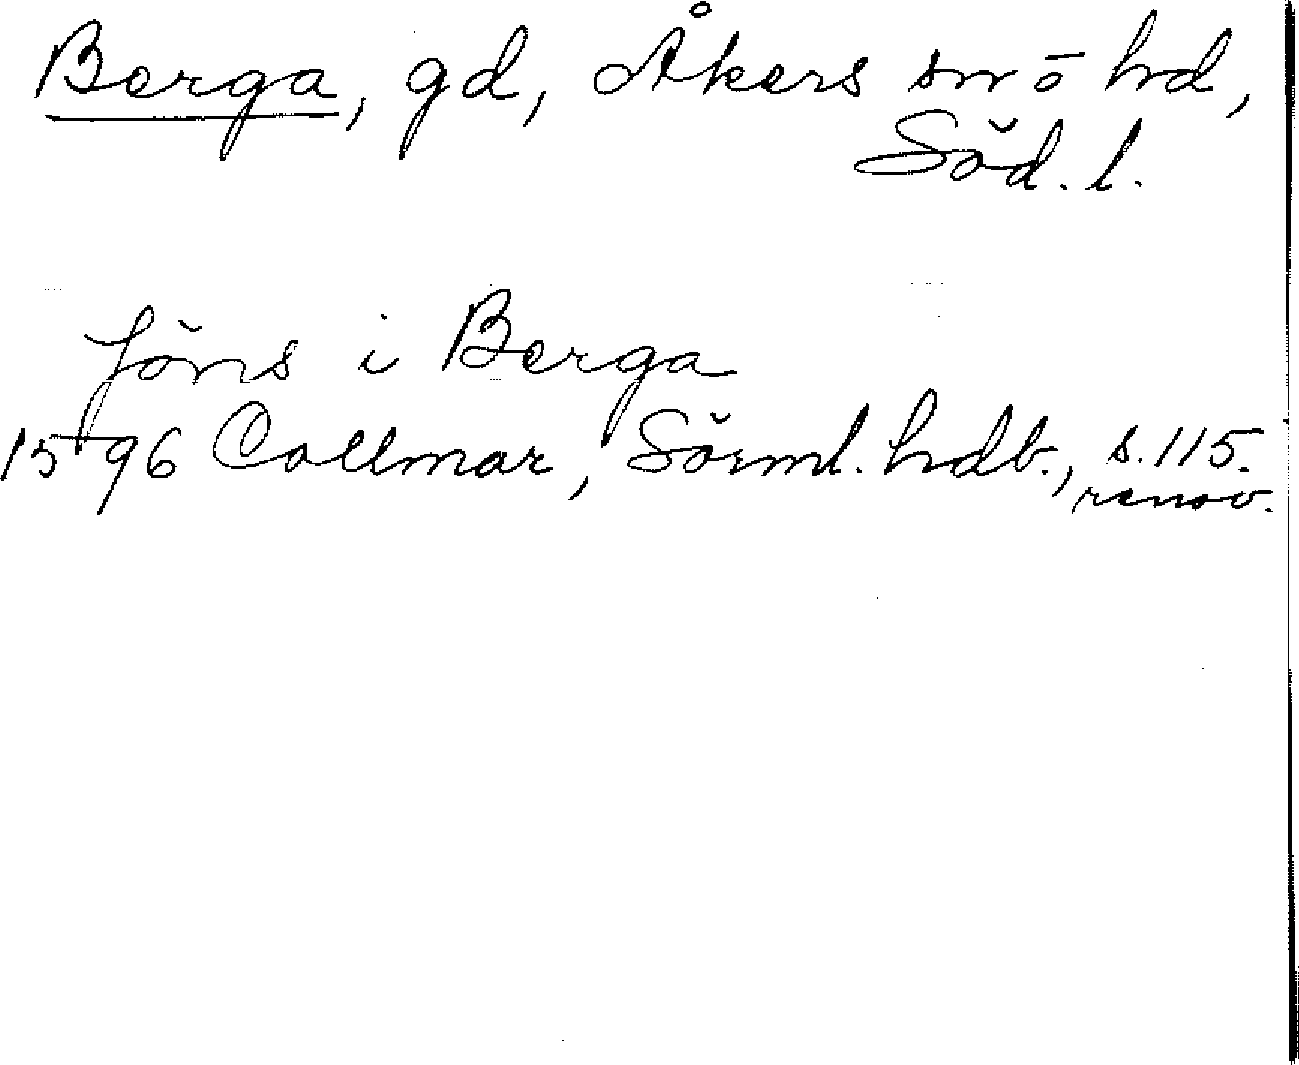 Berga, gd, Åkers sn ō hd,
Söd. l.
Jöns i Berga
1596 Collmar, Sörml. hdb., s. 115.
renov.